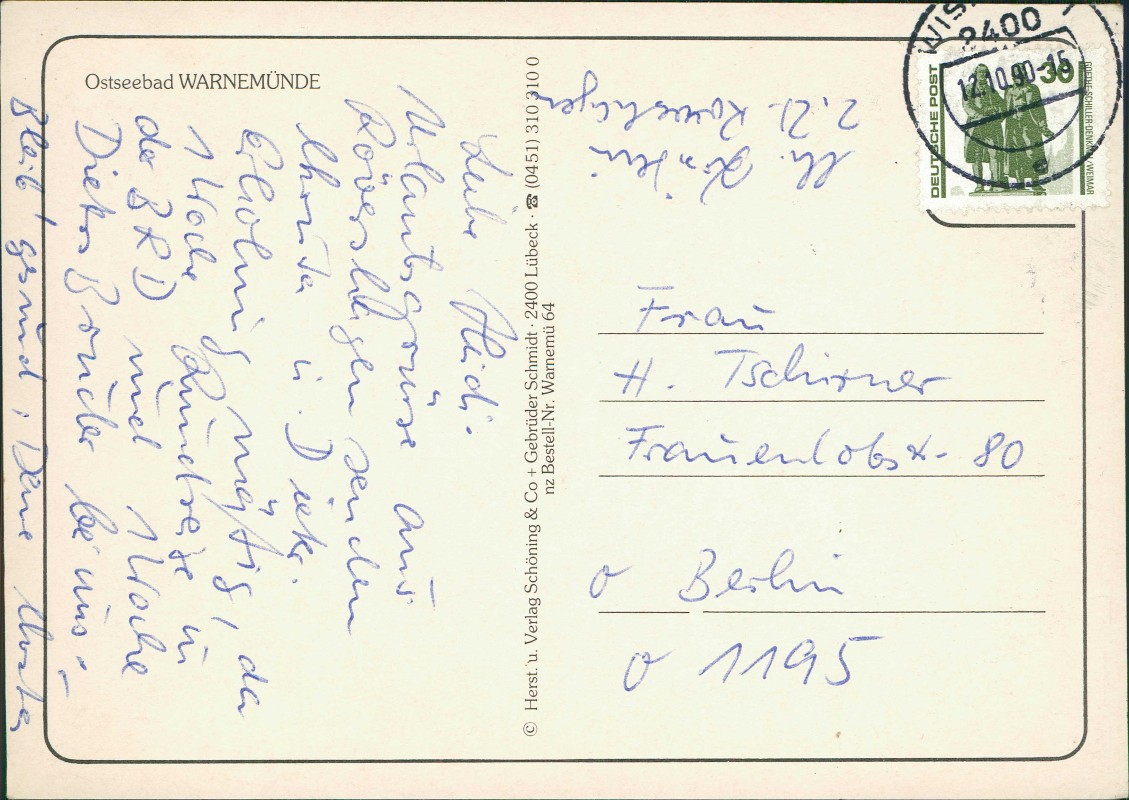 Ostseebad WARNEMÜNDE
Liebe Heidi.
Urlaubsgrüsse aus
Rövershagen senden
Christa u. Dieter.
Erholung mäßig, da
1 Woche Rundreise in
der BRD und 1 Woche
Dieters Bruder bei uns.
Bleib' gesund, Deine Christa
© Herst. u. Verlag Schöning & Co + Gebrüder Schmidt · 2400 Lübeck · ☎ (0451) 310 310 0
nz Bestell-Nr. Warnemü 64
Ch.
z. Zt. Rövershagen
WIS
2400
12.10.90-15
e
DEUTSCHE POST
30
GOETHE-SCHILLER-DENKMAL WEIMAR
Frau
H. Tschirner
Frauenlobstr. 80
O Berlin
O 1195